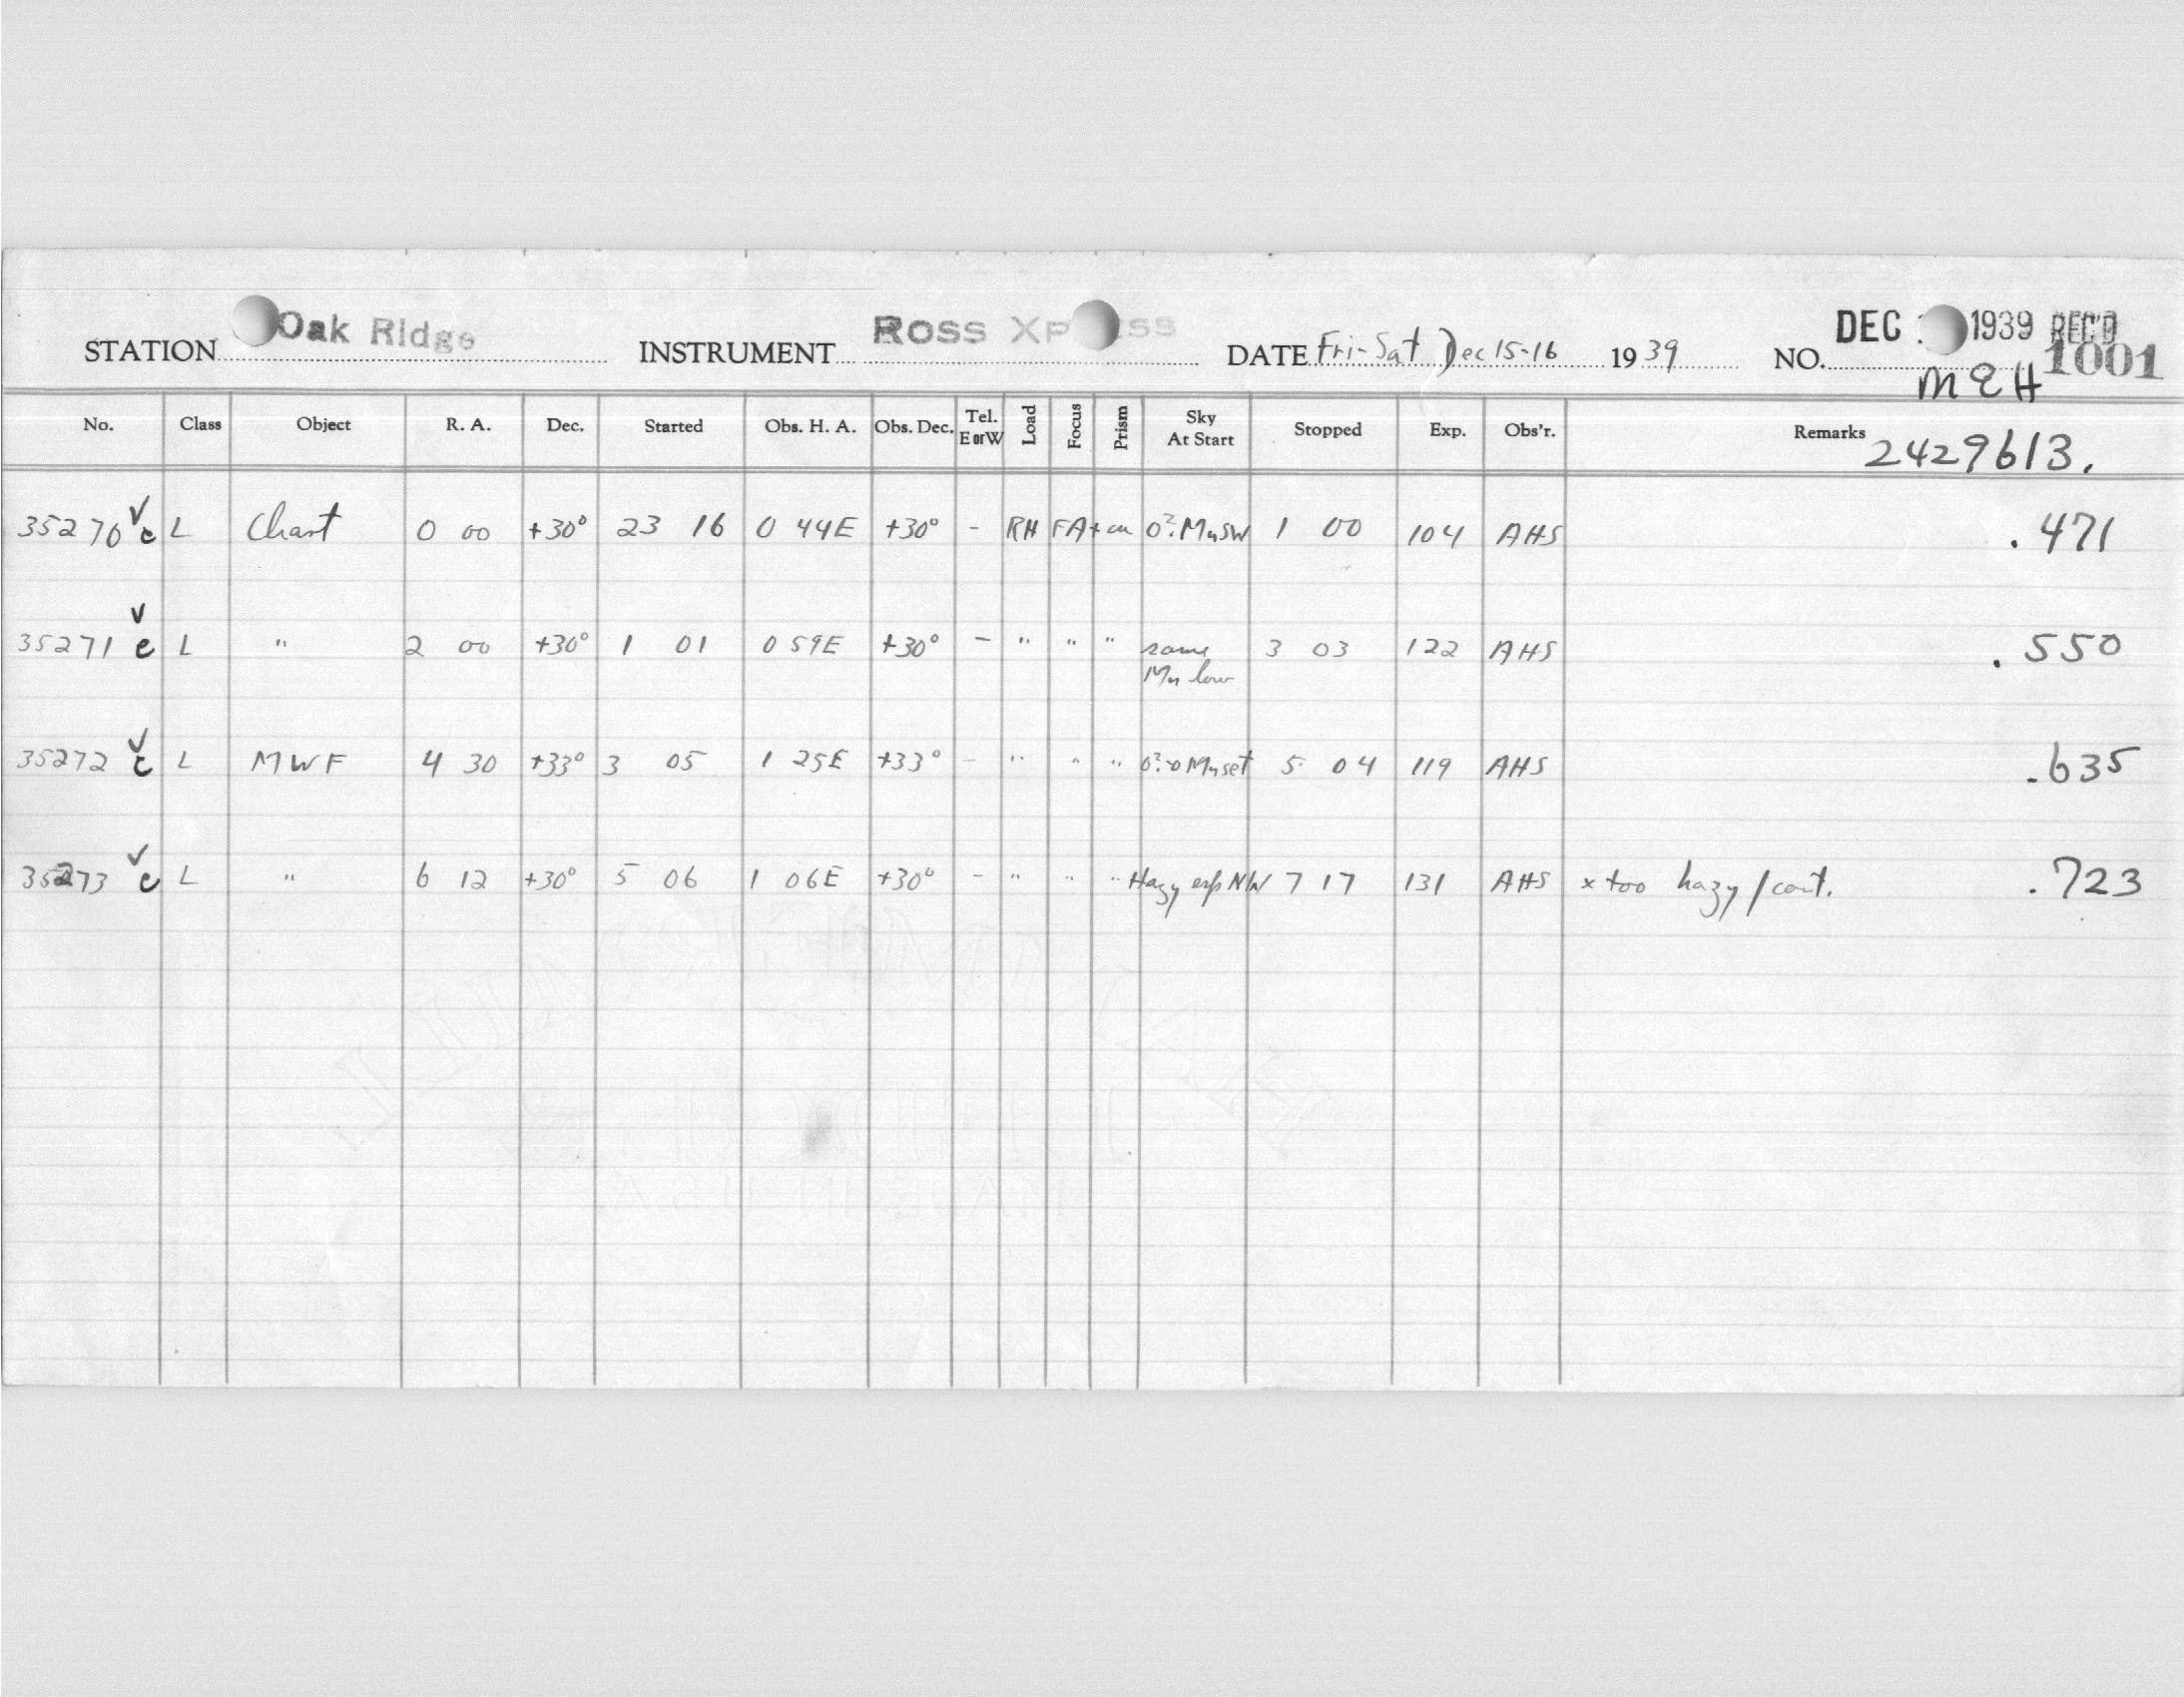 DEC 1939 REC'D
STATION Oak Ridge INSTRUMENT Ross Xp ss DATE Fri-Sat Dec 15-16 1939 NO. 1001
M E H
No. Class Object R. A. Dec. Started Obs. H. A. Obs. Dec. Tel. E or W Load Focus Prism Sky At Start Stopped Exp. Obs'r. Remarks
2429613.
35270 c L Chart 0 00 +30° 23 16 0 44E +30° - RH FA+ 0? Mn SW 1 00 104 AHS .471
35271 c L " 2 00 +30° 1 01 0 59E +30° - " " " same 3 03 122 AHS .550
Mn low
35272 c L MWF 4 30 +33° 3 05 1 25E +33° - " " " Mn set 5 04 119 AHS .635
35273 c L " 6 12 +30° 5 06 1 06E +30° - " " " Hazy esp NW 7 17 131 AHS x too hazy / cont. .723
MADE IN U.S.A.